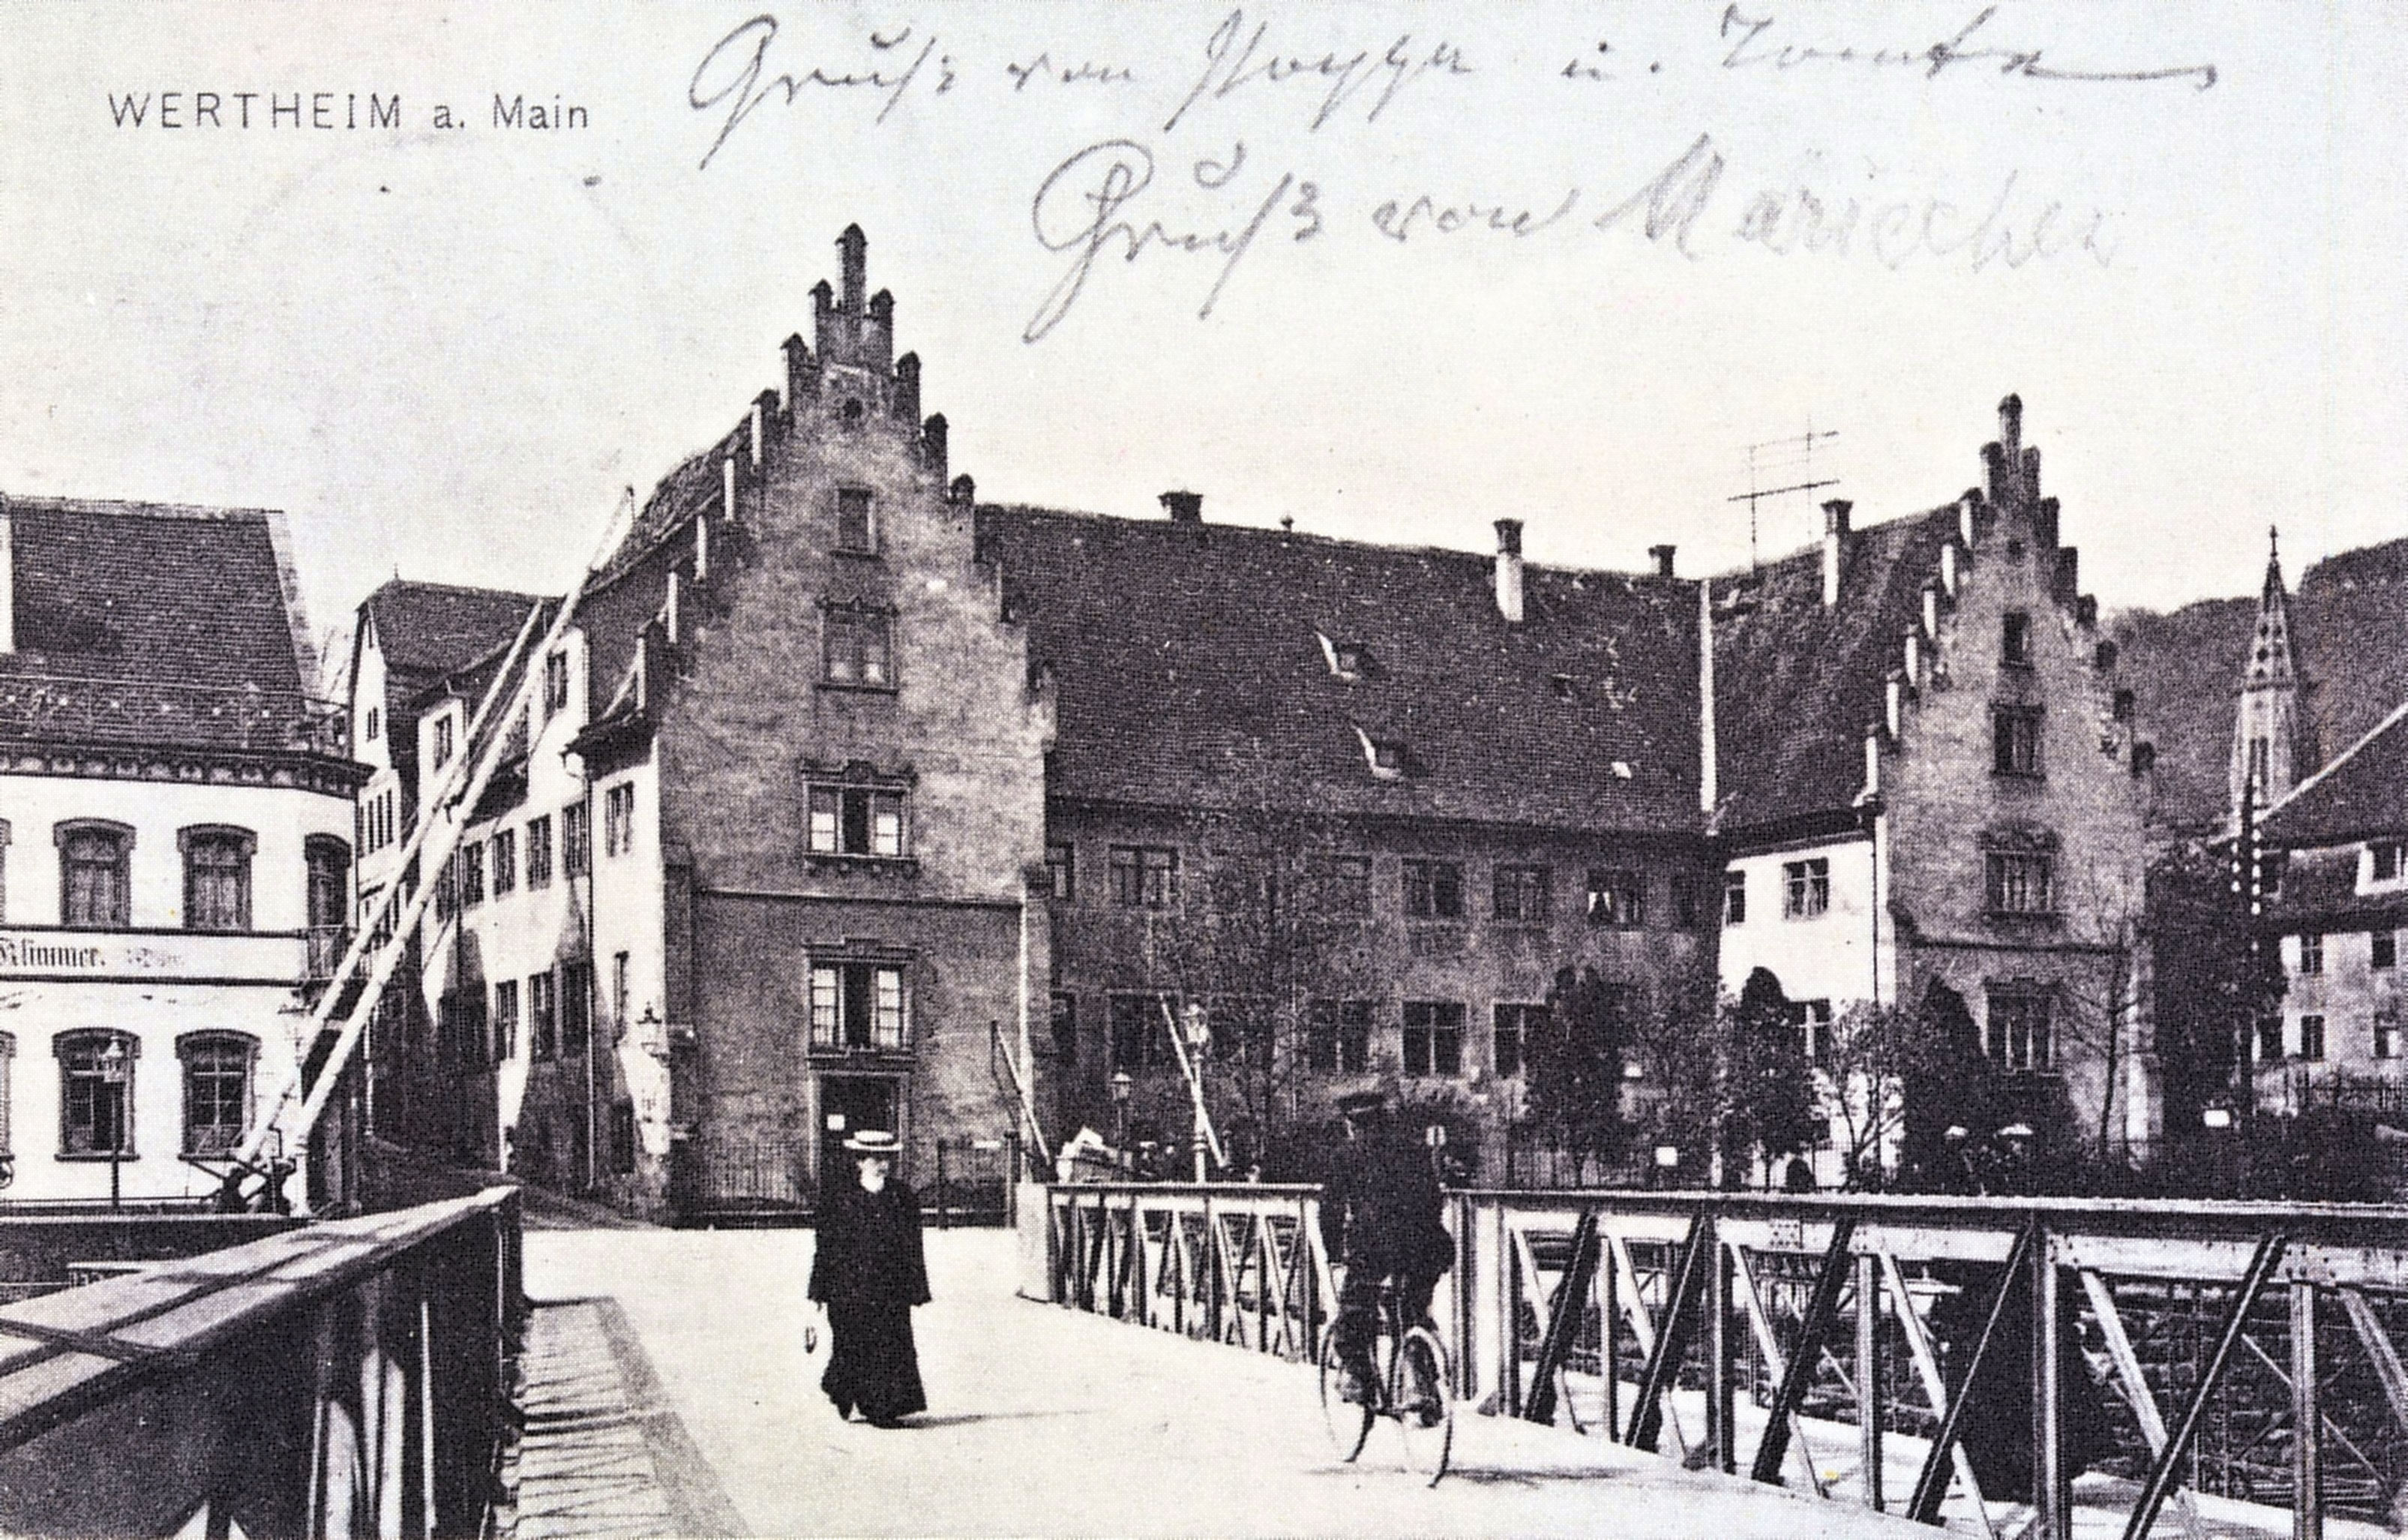 WERTHEIM a. Main
Gruß von Poppa u. Tante
Gruß von Mariechen
Klimmer.